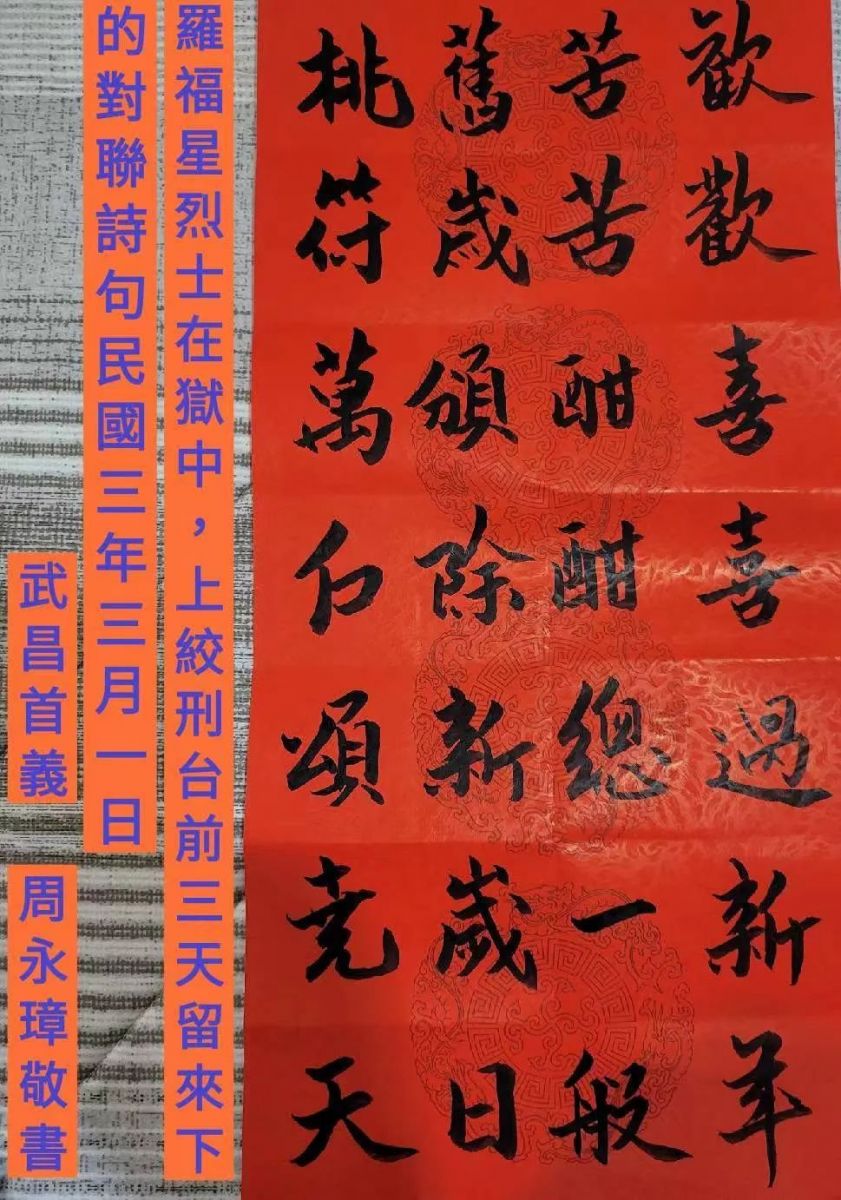 歡歡喜喜過新年
苦苦酣酣總一般
舊歲頒除新歲日
桃符萬戶頌堯天
羅福星烈士在獄中，上絞刑台前三天留來下
的對聯詩句民國三年三月一日
武昌首義 周永璋敬書